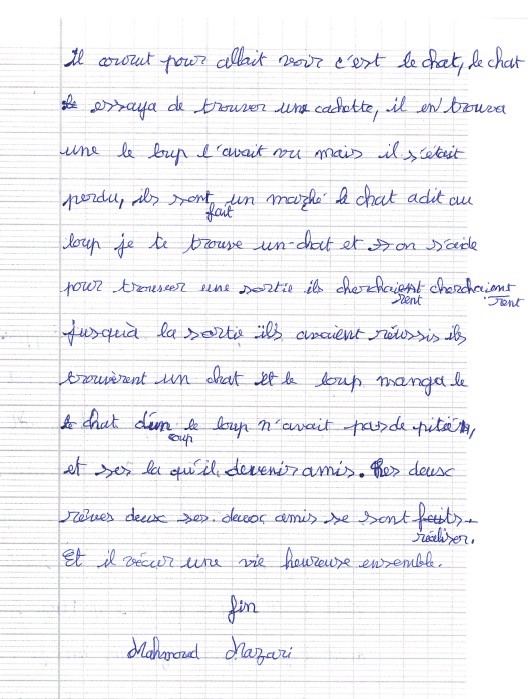 Il courut pour allait voir c'est le chat, le chat
essaya de trouver une cachette, il en trouva
une le loup l'avait vu mais il s'était
perdu, ils sont un marché le chat a dit au
fait
loup je te trouve un chat et on s'aide
pour trouver une sortie ils cherchaient cherchaient
rent rent
jusquà la sortie ils avaient réussis ils
trouvèrent un chat et le loup manga le
chat d'un le loup n'avait pas de pitié,
coup
et ses la qu'il devenir amis. Les deux
rêves deux ses deux amis se sont faits
réaliser.
Et il vécur une vie heureuse ensemble.
fin
Mahmoud Nazari